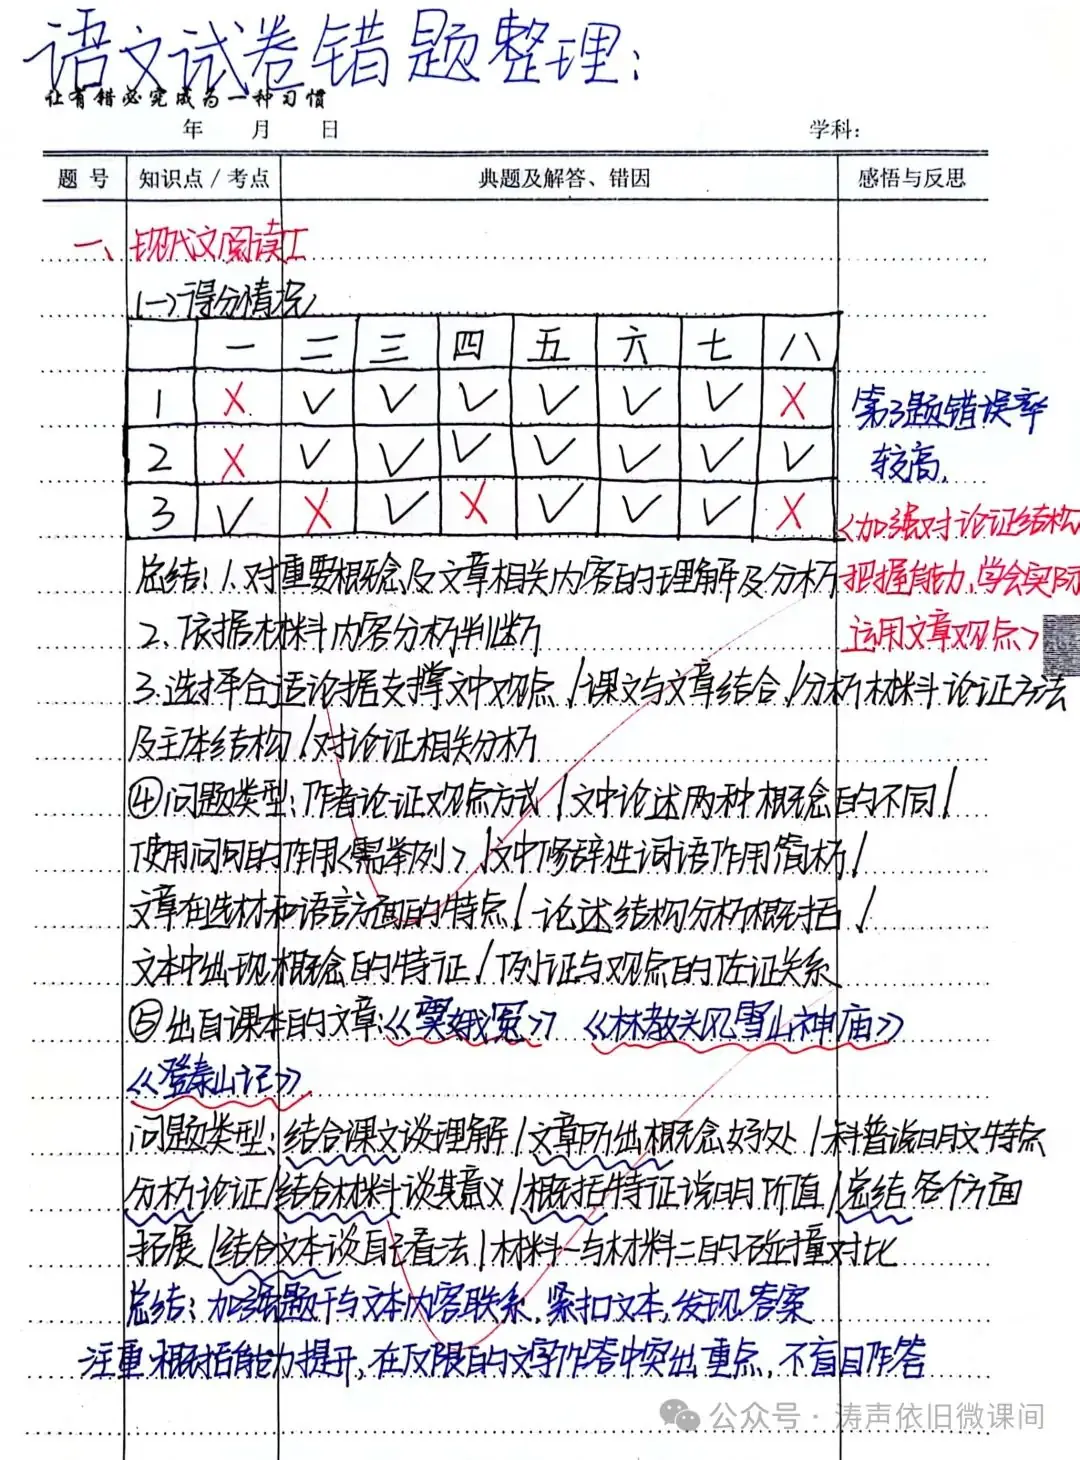 语文试卷错题整理:
让有错必究成为一种习惯
年 月 日 学科:
题号 知识点/考点 典题及解答、错因 感悟与反思
一、现代文阅读I
(一)得分情况
一 二 三 四 五 六 七 八
1 X √ √ √ √ √ √ X
2 X √ √ √ √ √ √ √
3 √ X √ X √ √ √ X
第3题错误率
较高.
<加强对论证结构
把握能力,学会实际
运用文章观点>
总结:1.对重要概念及文章相关内容的理解及分析
2.依据材料内容分析判断
3.选择合适论据支撑文中观点/课文与文章结合/分析材料论证方法
及主体结构/对论证相关分析
④问题类型:作者论证观点方式/文中论述两种概念的不同/
使用问句的作用<需举例>/文中修辞性词语作用简析/
文章在选材和语言方面的特点/论述结构分析概括/
文本中出现概念的特征/例证与观点的佐证关系
⑤出自课本的文章:《窦娥冤》《林教头风雪山神庙》
《登泰山记》
问题类型:结合课文谈理解/文章所出概念好处/科普说明文特点
分析论证/结合材料谈其意义/概括特征说明价值/总结各个方面
拓展/结合文本谈自己看法/材料一与材料二的碰撞对比
总结:加强题干与文本内容联系,紧扣文本,发现答案
注重概括能力提升,在有限的文字作答中突出重点,不盲目作答
公众号·涛声依旧微课间